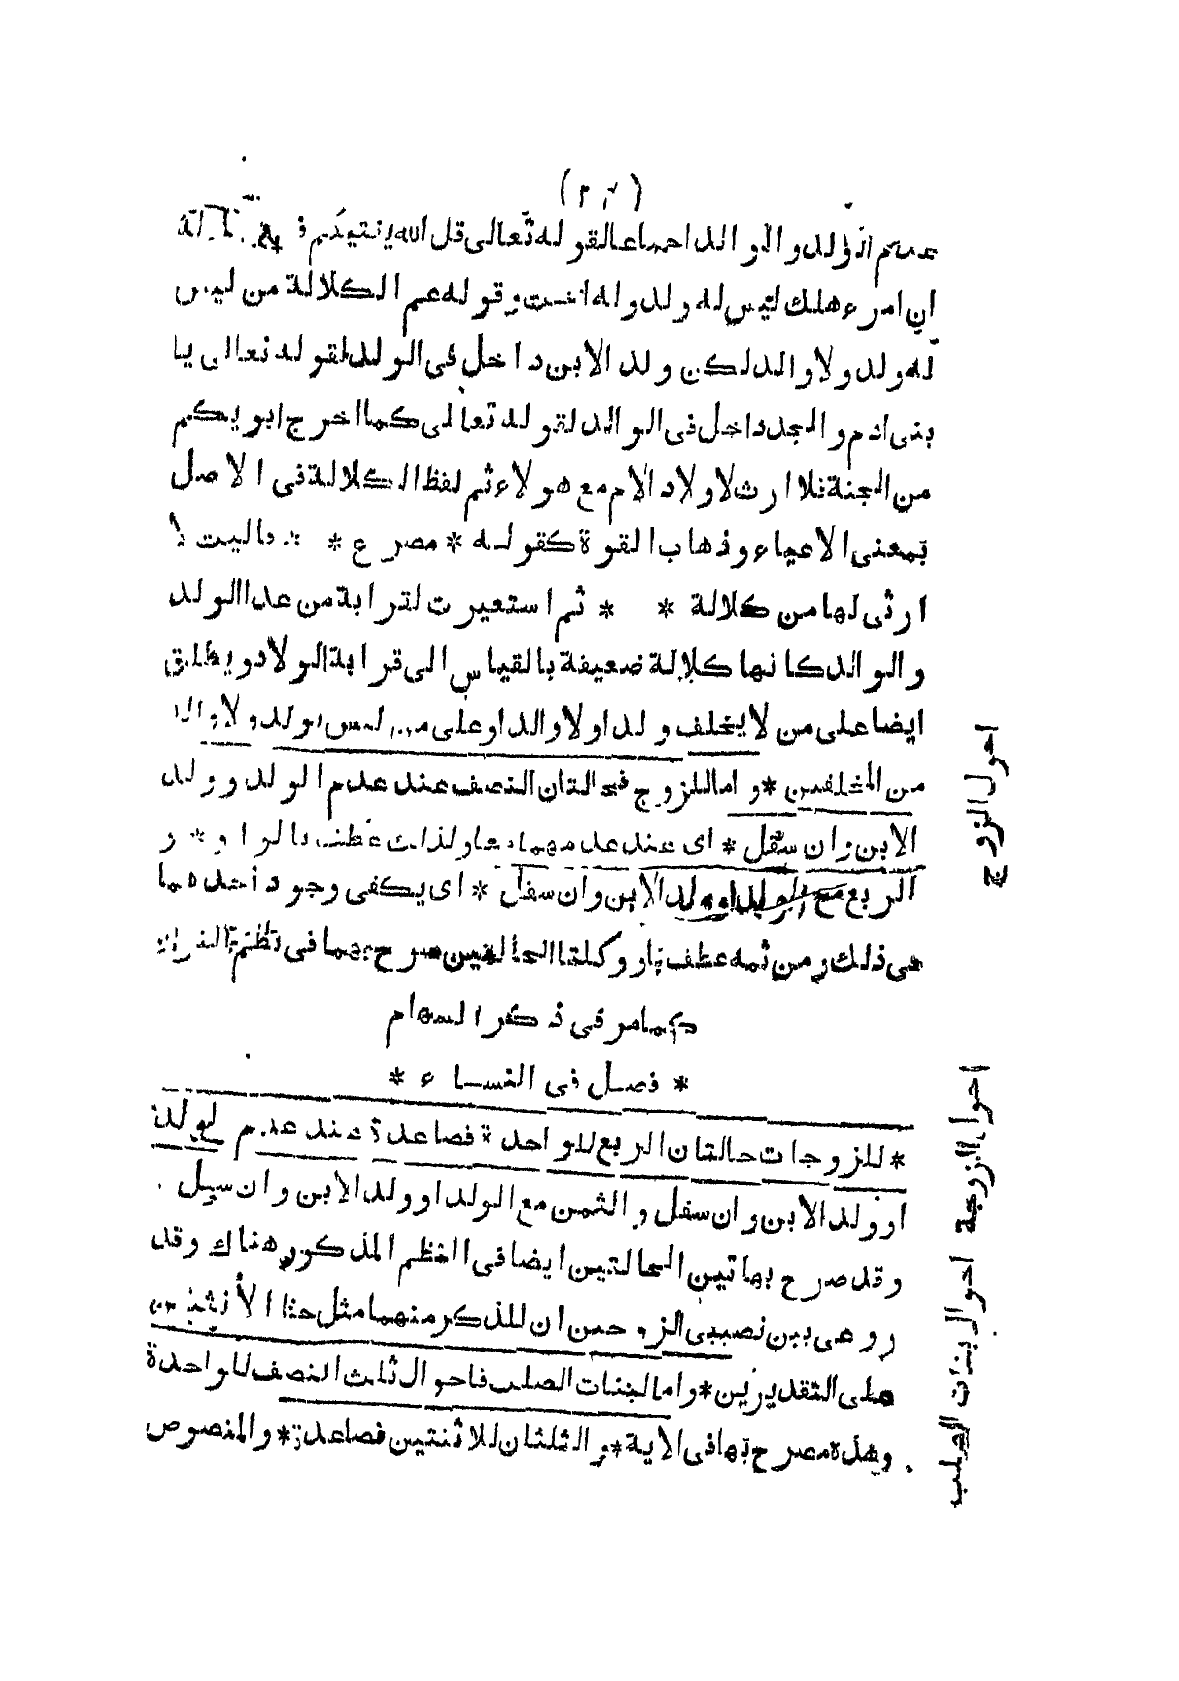 عدم الولد والوالد اجماعا لقوله تعالى قل الله يفتيكم في الكلالة
ان امرء هلك ليس له ولد وله اخت وقوله عم الكلالة من ليس
له ولد ولا والد لكن ولد الابن داخل فى الولد لقوله تعالى يا
بنى ادم والجد داخل فى الوالد لقوله تعالى كما اخرج ابويكم
من الجنة فلا ارث لاولاد الام مع هولاء ثم لفظ الكلالة فى الاصل
بمعنى الاعياء وذهاب القوة كقوله * مصرع * فاليت لا
ارثى لها من كلالة * * ثم استعيرت لقرابة من عدا الولد
والوالد كانها كلالة ضعيفة بالقياس الى قرابة الولاد ويطلق
ايضا على من لا يخلف ولدا ولا والدا وعلى من ليس بولد ولا والد
من المخلفين * واما للزوج فحالتان النصف عند عدم الولد وولد
الابن وان سفل * اى عند عدمهما معا ولذلك عطف بالواو * و
الربع مع الولد او ولد الابن وان سفل * اى يكفى وجود احدهما
فى ذلك ومن ثمه عطف باو وكلتا الحالتين صرح بهما فى نظم القران
كما مر فى ذكر السهام
* فصل فى النساء *
* للزوجات حالتان الربع للواحدة فصاعدة عند عدم الولد
او ولد الابن وان سفل والثمن مع الولد او ولد الابن وان سفل
وقد صرح بهاتين الحالتين ايضا فى النظم المذكور هناك وقد
روعى بين نصيبى الزوجين ان للذكر منهما مثل حظ الانثيين
على التقديرين * واما لبنات الصلب فاحوال ثلث النصف للواحدة
وهذه مصرح بها فى الاية * والثلثان للاثنتين فصاعدة * والمنصوص
احوال الزوج
احوال الزوجة
احوال بنات الصلب